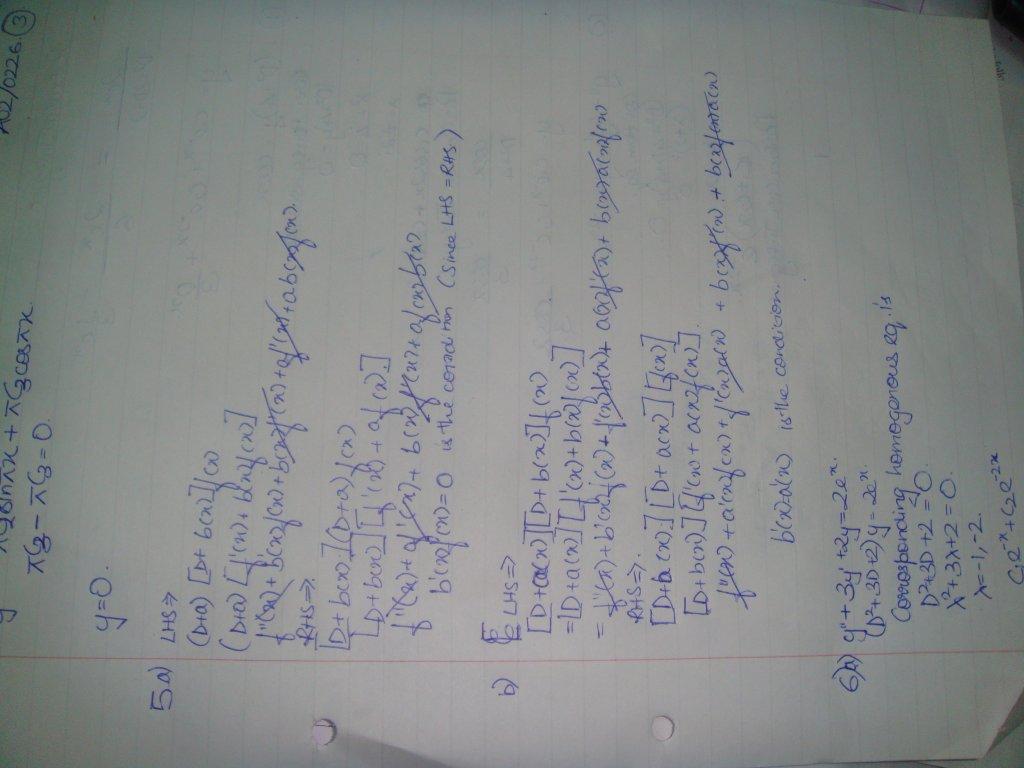 πC3 - πC3 = 0.
y=0.
5a) LHS ⇒
(D+a) [D+ b(x)] f(x)
(D+a) [f'(x) + b(x)f(x)]
f''(x) + b'(x)f(x) + b(x)f'(x) + af'(x) + ab(x)f(x).
RHS ⇒
[D + b(x)] (D+a) f(x)
[D + b(x)] [f'(x) + a f(x).]
f''(x) + af'(x) + b(x)f'(x) + af(x)b(x)
b'(x)f(x) = 0 is the condition (Since LHS = RHS)
b) LHS ⇒
[D + a(x)] [D + b(x)] f(x)
= [D + a(x)] [f'(x) + b(x)f(x)]
= f''(x) + b'(x)f(x) + f'(x)b(x) + a(x)f'(x) + b(x)a(x)f(x)
RHS ⇒
[D + b(x)] [D + a(x)] [f(x)]
[D + b(x)] [f'(x) + a(x)f(x)].
f''(x) + a'(x)f(x) + f'(x)a(x) + b(x)f'(x) + b(x)f(x)a(x)
is the condition.
6a) y'' + 3y' + 2y = 2e^x.
(D²+3D+2)y = 2e^x.
Corrosponding homogenous eq. is
D²+3D+2 = 0.
λ²+3λ+2 = 0.
λ = -1, -2
C1e^-x + C2e^-2x